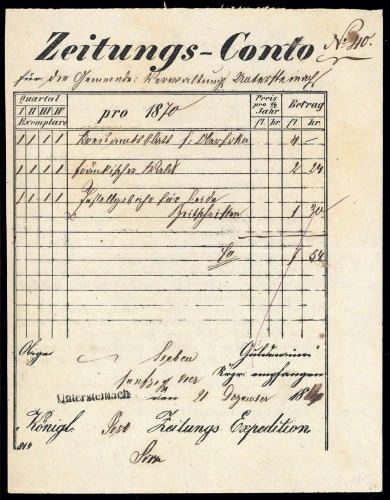 No 40.
Zeitungs-Conto
für die Gemeinde-Verwaltung Untersteinach
Quartal I II III IV Exemplare pro 1870 Preis pro Jahr fl kr Betrag fl kr
1 1 1 1 Kreisamtsblatt f. Oberfrkn 4 —
1 1 1 1 Fränkischer Wald 2 24
1 1 1 1 für beide
Zeitschriften 1 30
7 54
Obige Sieben Gulden
fünfzig vier empfangen
Untersteinach den 21 Dezember 18
Königl. Post Zeitungs Expedition